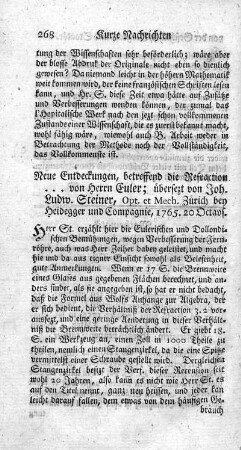 268 Kurze Nachrichten
tung der Wissenschaften sehr beförderlich; wäre aber
der blosse Abdruck der Originale nicht eben so dienlich
gewesen? Da niemand leicht in der höhern Mathematik
weit kommen wird, der keine französischen Schriften lesen
kann, und Hr. S. diese Zeit etwa hätte auf Zusätze
und Verbesserungen wenden können, der zumal das
l'Hopitalische Werk nach den jetzt schon vollkommenern
Zustande einer Wissenschaft, die es zuerst bekannt macht,
wohl fähig wäre, wiewohl auch B. Arbeit weder in
Betrachtung der Methode noch der Vollständigkeit,
das Vollkommenste ist.
Neue Entdeckungen, betreffend die Refraction
. . . von Herrn Euler; übersezt von Joh.
Ludw. Steiner, Opt. et Mech. Zürich bey
Heidegger und Compagnie, 1765. 20 Octavs.
Herr St. erzählt hier die Eulerischen und Dollondi-
schen Bemühungen, wegen Verbesserung der Fern-
röhre, auch was Herr Zeiher dabey geleistet, und macht
hie und da aus eigner Einsicht sowohl als Belesenheit,
gute Anmerkungen. Wenn er 17 S. die Brennweite
eines Glases aus gegebenen Flächen berechnet, und an-
ders findet, als sie angegeben ist, so hat er nicht bedacht,
daß die Formel aus Wolfs Anfangs zur Algebra, der
er sich bedient, die Verhältniß der Refraction 3. 2 vor-
aussetzt, und eine geringe Aenderung in dieser Verhält-
niß die Brennweite beträchtlich ändert. Er giebt 18.
S. ein Werkzeug an, einen Zoll in 1000 Theile zu
theilen, nemlich einen Stangenzirkel, da die eine Spitze
vermittelst einer Schraube gestellt wird. Dergleichen
Stangenzirkel besitzt der Verf. dieser Recension seit
wohl 20 Jahren, also kann es nicht wie Herr St. es
auf den Titel nennt, ganz neu heissen, und jeder kan
leicht darauf fallen, dem etwas von dem häufigen Ge-
brauch